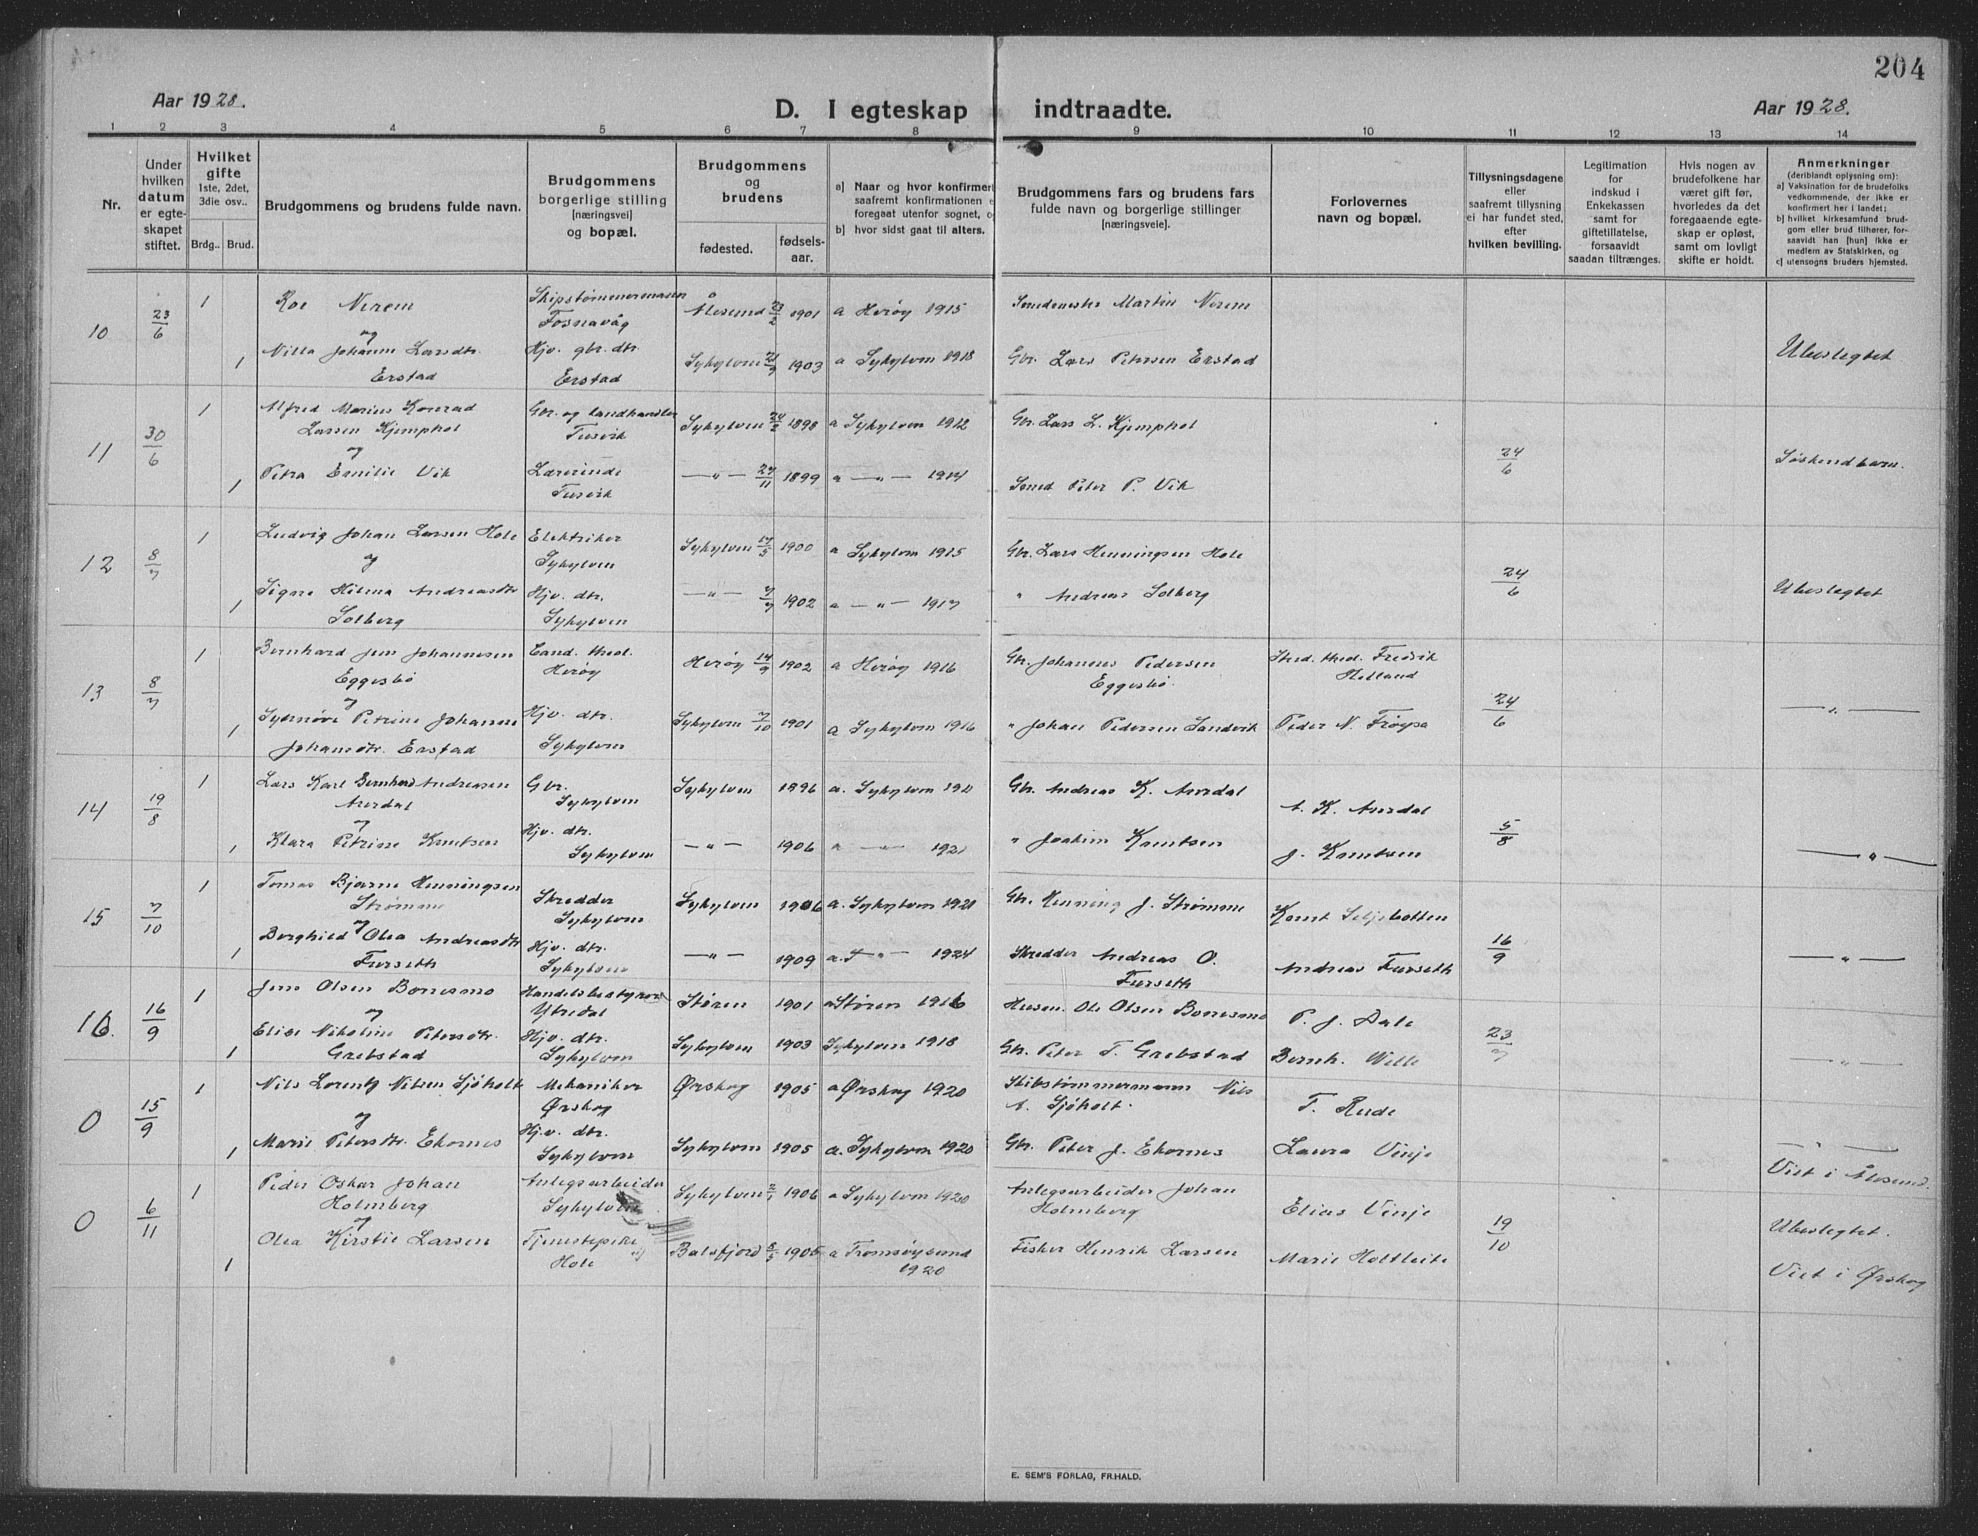 204
Aar 1928.
D. I egteskap indtraadte.
Aar 1928.
1 2 3 4 5 6 7 8 9 10 11 12 13 14
Nr.
Under hvilken datum er egteskapet stiftet.
Hvilket gifte 1ste, 2det, 3die osv..
Brdg.. Brud.
Brudgommens og brudens fulde navn.
Brudgommens borgerlige stilling [næringsvei] og bopæl.
Brudgommens og brudens
fødested.
fødselsaar.
a] Naar og hvor konfirmert saafremt konfirmationen e foregaat utenfor sognet, o
b] hvor sidst gaat til alters.
Brudgommens fars og brudens fars fulde navn og borgerlige stillinger [næringsveie].
Forlovernes navn og bopæl.
Tillysningsdagene eller saafremt tillysning ei har fundet sted, efter hvilken bevilling.
Legitimation for indskud i Enkekassen samt for giftetillatelse, forsaavidt saadan tiltrænges.
Hvis nogen av brudefolkene har været gift før, hvorledes da det foregaaende egteskap er opløst, samt om lovligt skifte er holdt.
Anmerkninger
(deriblandt oplysning om):
a] Vaksination for de brudefolks vedkommende, der ikke er konfirmert her i landet;
b] hvilket kirkesamfund brudgom eller brud tilhører, forsaavidt han [hun] ikke er medlem av Statskirken, og
c] utensogns bruders hjemsted.
10 23/6 1 Roe Nerem Skipstømmermann Fosnavåg Ålesund 23/2 1901 a Herøy 1915 Martin Nerem
og
1 Johanne Larsdtr. Erstad Hjv. gbr. dtr. Erstad Sykylven 1903 a Sykylven 1918 Gbr. Lars Petersen Erstad Ubeslegtet
11 30/6 1 Alfred Marius Konrad Larsen Kjemphol Gbr. og landhandler Tusvik Sykylven 24/2 1898 a Sykylven 1912 Gbr. Lars L. Kjemphol 24/6 Søskendbarn.
og
1 Petra Emilie Vik Lærerinde Tusvik —"— 27/11 1899 a —"— 1914 Smed Peter P. Vik
12 8/7 1 Ludvig Johan Larsen Hole Elektriker Sykylven Sykylven 17/5 1900 a Sykylven 1915 Gbr. Lars Henningsen Hole 24/6
og
1 Signe Hilma Andreasdtr Solberg Hjv. dtr. Sykylven —"— 7/7 1902 a —"— 1917 " Andreas Solberg Ubeslegtet
13 8/7 1 Bernhard Jen Johannesen Eggesbø Cand. theol. Herøy Herøy 14/9 1902 a Herøy 1916 Gbr. Johannes Pedersen Eggesbø. Stud. theol. Fredrik Helland 24/6
og
1 Synnøve Petrine Johanne Johansdtr. Erstad Hjv. dtr. Sykylven Sykylven 7/10 1901 a Sykylven 1916 " Johan Pedersen Sandvik Peder N. Frøysa —"—
14 19/8 1 Lars Karl Bernhard Andreasen Aurdal Gbr. Sykylven Sykylven 1896 a. Sykylven 1911 Gbr. Andreas K. Aurdal A. K. Aurdal 5/8
og
1 Klara Petrine Knutsen Hjv. dtr. Sykylven —"— 1906 " —"— 1921 " Joakim Knutsen J. Knutsen —"—
15 7/10 1 Tomas Bjarne Henningsen Strømme Skredder Sykylven Sykylven 1906 a. Sykylven 1921 Gbr. Henning J. Strømme Knut Seljebotten 16/9
og
1 Borghild Olea Andreasdtr Furseth Hjv. dtr. Sykylven —"— 1909 a. —"— 1924 Skredder Andreas O. Furseth Andreas Furseth —"—
16. 16/9 1 Jens Olsen Bonesmo Handelsbestyrer Ytredal Støren 1901 a Støren 1916 Husm. Ole Olsen Bonesmo P. J. Dale 23/7
og
1 Elise Nikoline Petersdtr. Grebstad Hjv. dtr. Sykylven Sykylven 1903 Sykylven 1918 Gbr. Peter T. Grebstad Bernh. Welle —"—
0 15/9 1 Nils Lorentz Nilsen Sjøholt Mekaniker Ørskog Ørskog 1905 a Ørskog 1920 Skibstømmermann Nils A. Sjøholt. T. Rude
og
1 Marie Petersdtr. Ekornes Hjv. dtr. Sykylven Sykylven 1905 a. Sykylven 1920 Gbr. Peter J. Ekornes Laura Vinje —"— Viet i Ålesund.
0 6/11 1 Peder Oskar Johan Holmberg Anlegsarbeider Sykylven Sykylven 1906 a Sykylven 1920 Anlegsarbeider Johan Holmberg Elias Vinje 19/10 Ubeslegtet.
og
1 Olea Kirstie Larsen Tjenestepike Hole Balsfjord 1905 a Tromsøysund 1920 Fisker Henrik Larsen Marie Holtleite Viet i Ørskog
E. SEM'S FORLAG, FR.HALD.